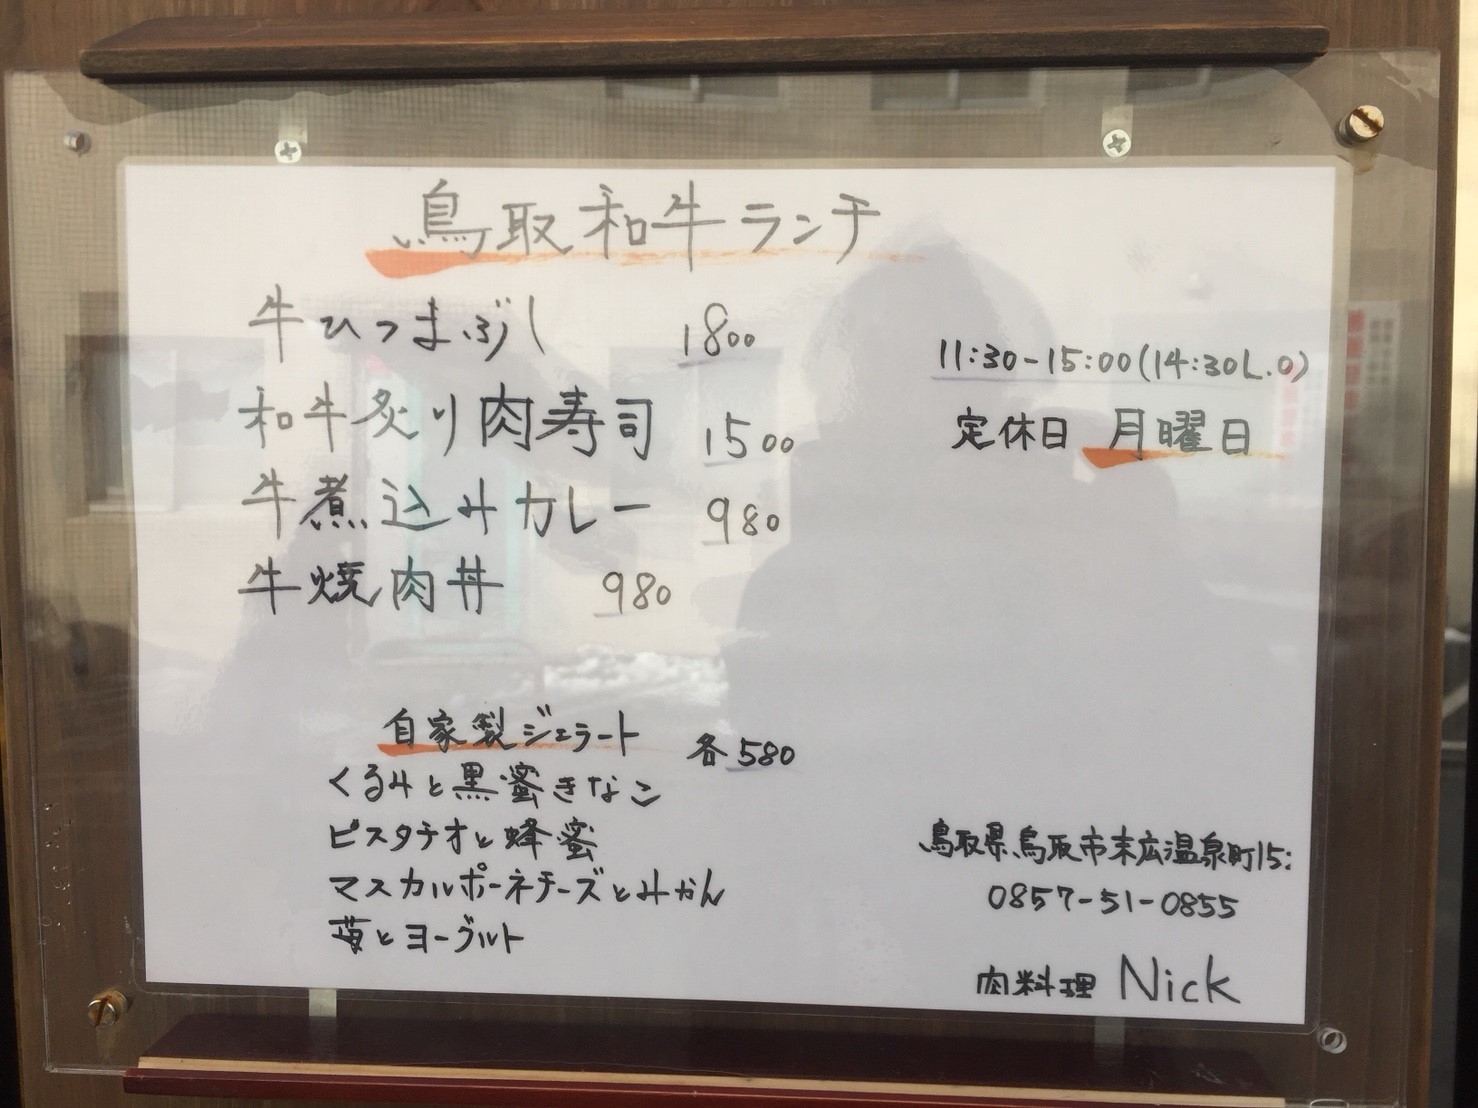 鳥取和牛ランチ
牛ひつまぶし 1800
和牛炙り肉寿司 1500
牛煮込みカレー 980
牛焼肉丼 980
11:30-15:00(14:30L.O)
定休日 月曜日
自家製ジェラート 各580
くるみと黒蜜きなこ
ピスタチオと蜂蜜
マスカルポーネチーズとみかん
苺とヨーグルト
鳥取県鳥取市末広温泉町15:
0857-51-0855
肉料理 Nick